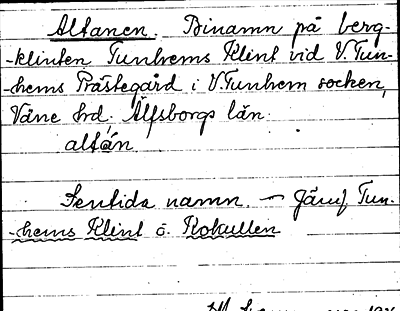 Altanen. Binamn på berg-
-klinten Tunhems Klint vid V. Tun-
-hems Prästegård i V. Tunhem socken,
Väne hrd. Älfsborgs län.
altán
Sentida namn. — Jämf Tun-
-hems Klint o. Kokullen